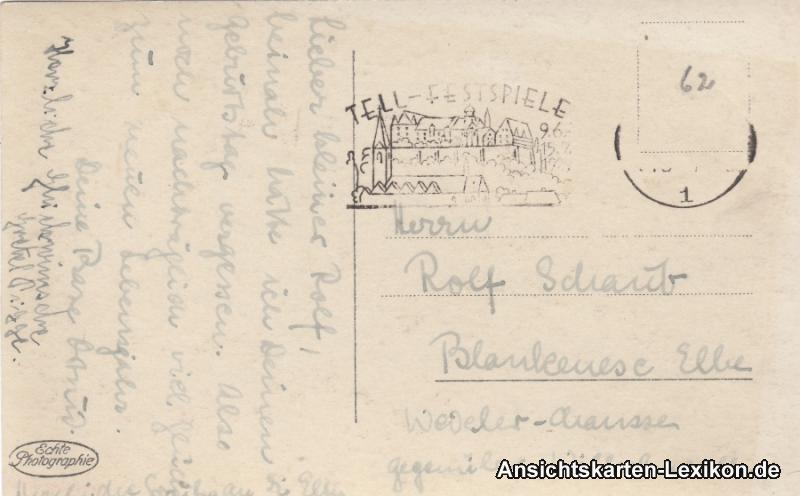 Lieber kleiner Rolf!
beinahe hätte ich Deinen
Geburtstag vergessen. Also
noch nachträglich viel Glück
zum neuen Lebensjahr.
Deine
Herzliche Glückwünsche
TELL-FESTSPIELE
9.6.
15.7.
62
1
Herrn
Rolf Schaub
Blankenese Elbe
Wedeler-Chaussee
Echte
Photographie
Ansichtskarten-Lexikon.de